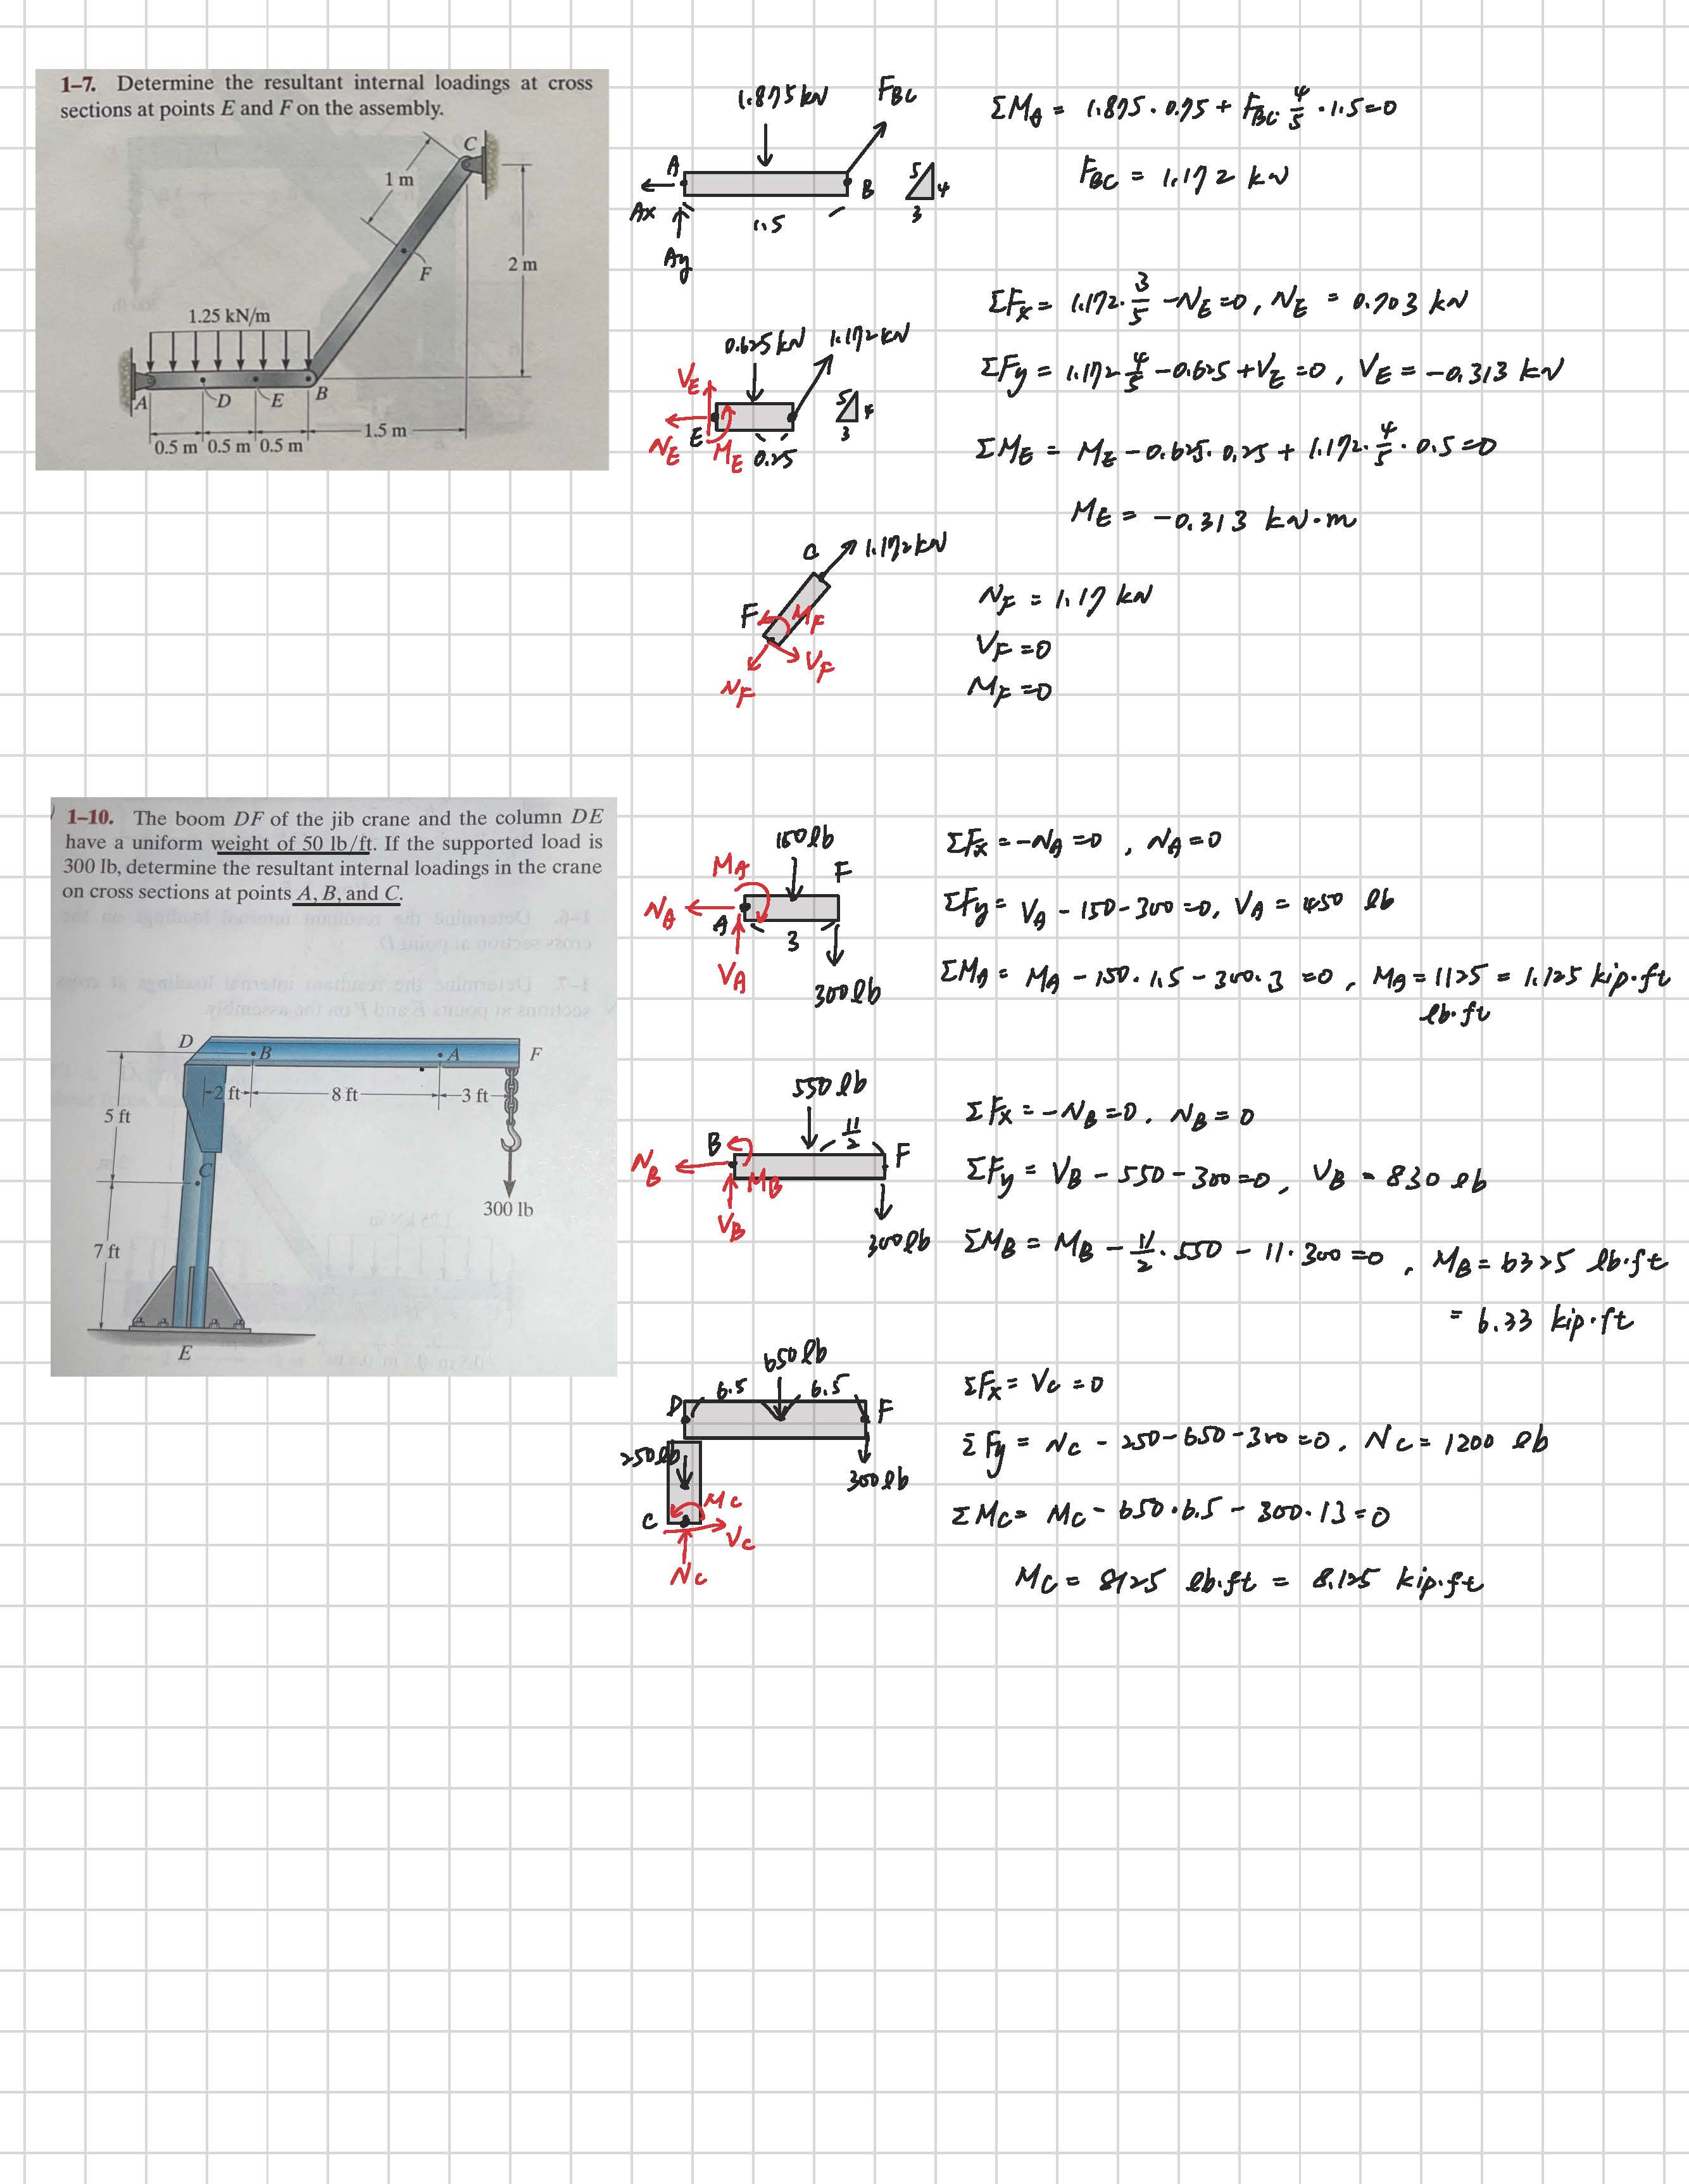 1–7. Determine the resultant internal loadings at cross
sections at points E and F on the assembly.
C
1 m
F
2 m
1.25 kN/m
A
D
E
B
1.5 m
0.5 m 0.5 m 0.5 m
1.875 kN
FBC
A
B
Ax
Ay
1.5
5
4
3
ΣMA = 1.875 · 0.75 + FBC · 4/5 · 1.5 = 0
FBC = 1.172 kN
0.625 kN
1.172 kN
VE
NE
E
ME
0.25
5
4
3
ΣFx = 1.172 · 3/5 - NE = 0, NE = 0.703 kN
ΣFy = 1.172 4/5 - 0.625 + VE = 0, VE = -0.313 kN
ΣME = ME - 0.625 · 0.25 + 1.172 · 4/5 · 0.5 = 0
ME = -0.313 kN·m
C
1.172 kN
F
MF
VF
NF
NF = 1.17 kN
VF = 0
MF = 0
1–10. The boom DF of the jib crane and the column DE
have a uniform weight of 50 lb/ft. If the supported load is
300 lb, determine the resultant internal loadings in the crane
on cross sections at points A, B, and C.
D
B
A
F
2 ft
8 ft
3 ft
5 ft
C
300 lb
7 ft
E
150 lb
MA
F
NA
A
3
VA
300 lb
ΣFx = -NA = 0, NA = 0
ΣFy = VA - 150 - 300 = 0, VA = 450 lb
ΣMA = MA - 150 · 1.5 - 300 · 3 = 0, MA = 1125 = 1.125 kip·ft
lb·ft
550 lb
11/2
B
F
NB
MB
VB
300 lb
ΣFx = -NB = 0. NB = 0
ΣFy = VB - 550 - 300 = 0, VB = 830 lb
ΣMB = MB - 11/2 · 550 - 11 · 300 = 0, MB = 6325 lb·ft
= 6.33 kip·ft
650 lb
D
6.5
6.5
F
250 lb
300 lb
C
MC
VC
NC
ΣFx = VC = 0
ΣFy = NC - 250 - 650 - 300 = 0. NC = 1200 lb
ΣMC = MC - 650 · 6.5 - 300 · 13 = 0
MC = 8125 lb·ft = 8.125 kip·ft